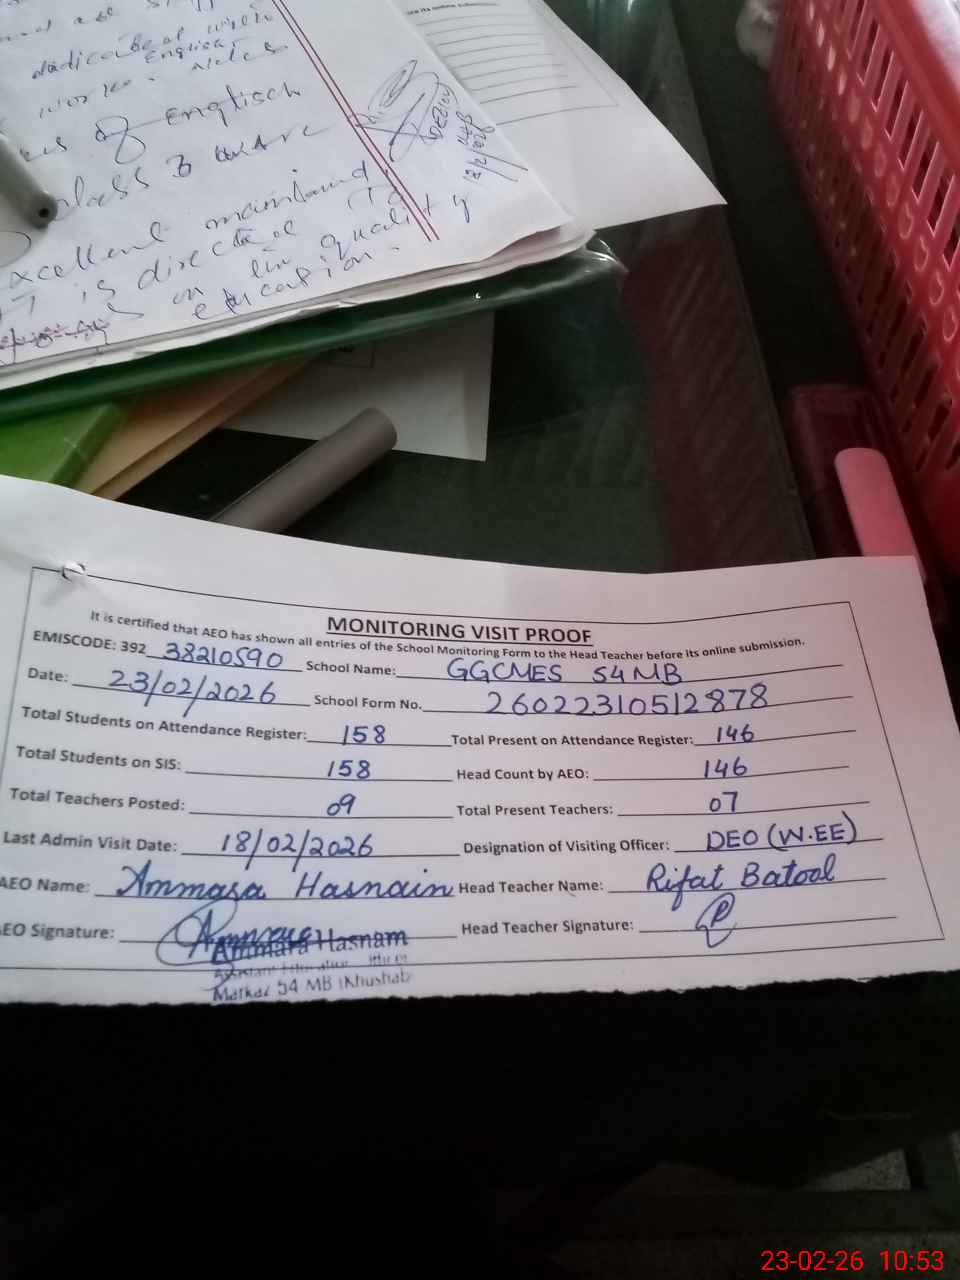 dedicated with
English
work. Notes
of English
class 3 were
Excellent maintained
is directed to
on the quality
education.
its online submission.
MONITORING VISIT PROOF
It is certified that AEO has shown all entries of the School Monitoring Form to the Head Teacher before its online submission.
EMISCODE: 392 38210590 School Name: GGCMES 54MB
Date: 23/02/2026 School Form No. 26022310512878
Total Students on Attendance Register: 158 Total Present on Attendance Register: 146
Total Students on SIS: 158 Head Count by AEO: 146
Total Teachers Posted: 09 Total Present Teachers: 07
Last Admin Visit Date: 18/02/2026 Designation of Visiting Officer: DEO (W.EE)
AEO Name: Ammara Hasnain Head Teacher Name: Rifat Batool
EO Signature: Head Teacher Signature:
Ammara Hasnain
Assistant Education Officer
Markaz 54 MB (Khushab
23-02-26 10:53